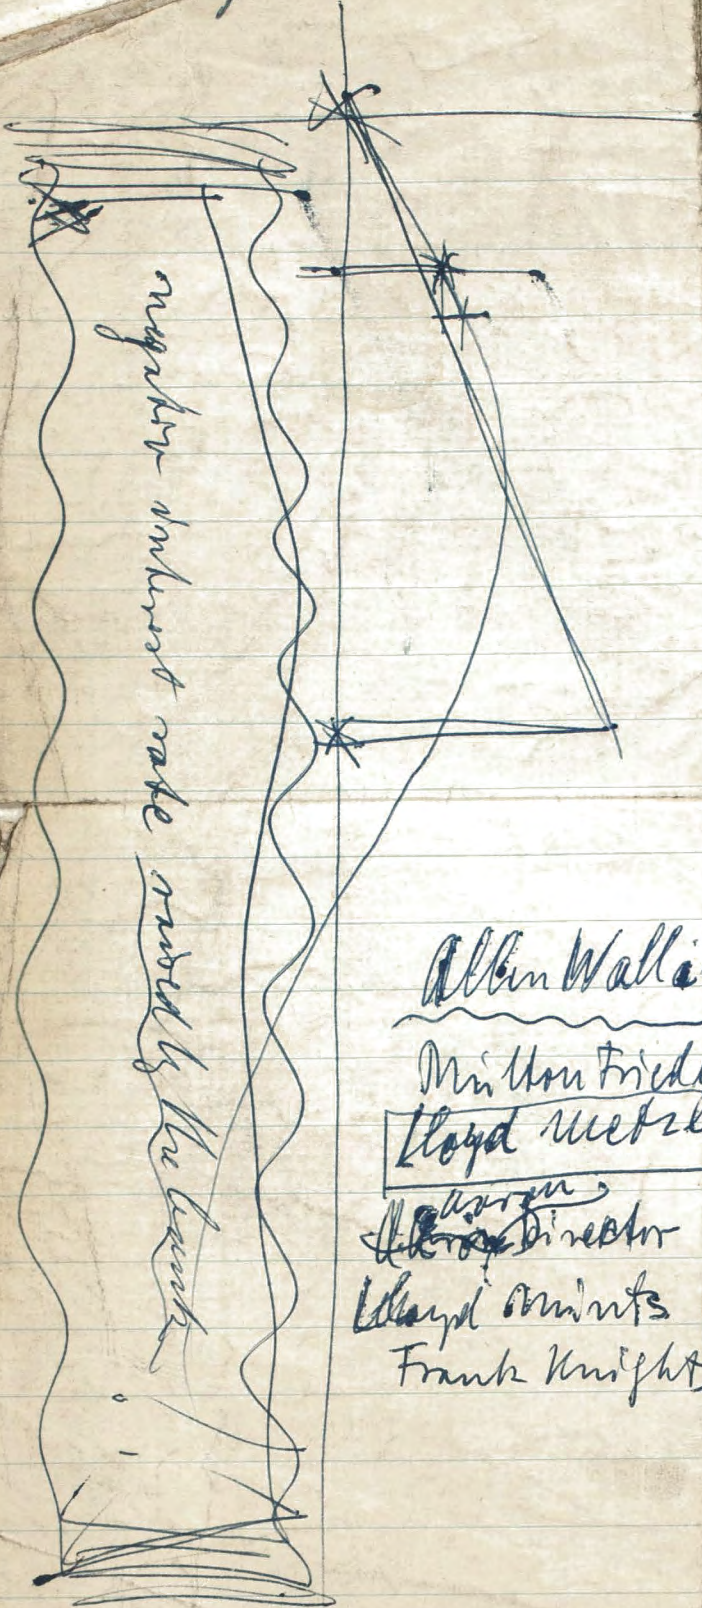 negativ interest rate raised by the bank
Allen Walli
Milton Fried
Lloyd Metzl
Aaron
Direktor
Lloyd Mints
Frank Knight